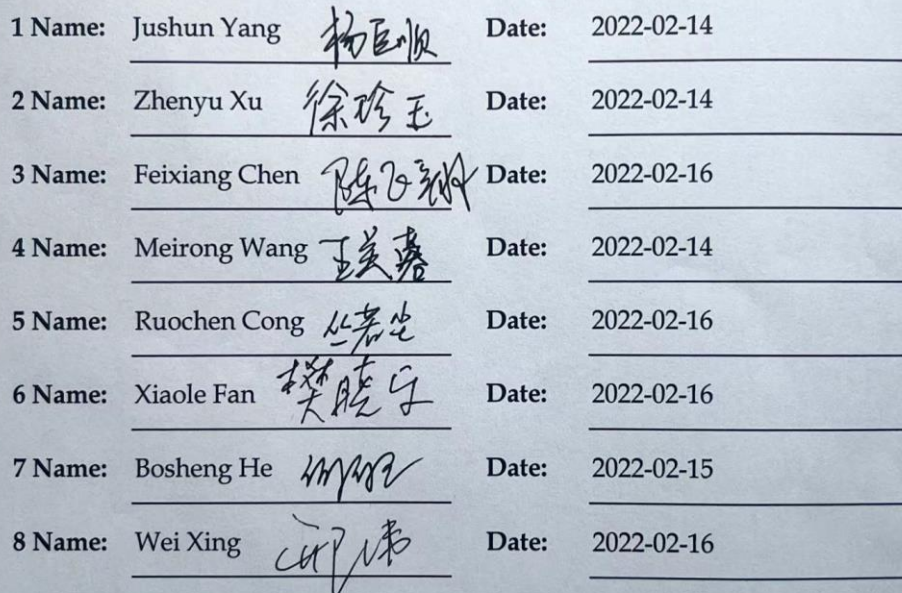 1 Name: Jushun Yang 杨巨顺 Date: 2022-02-14
2 Name: Zhenyu Xu 徐珍玉 Date: 2022-02-14
3 Name: Feixiang Chen 陈飞翔 Date: 2022-02-16
4 Name: Meirong Wang 王美蓉 Date: 2022-02-14
5 Name: Ruochen Cong 丛若尘 Date: 2022-02-16
6 Name: Xiaole Fan 樊晓乐 Date: 2022-02-16
7 Name: Bosheng He Date: 2022-02-15
8 Name: Wei Xing 邢伟 Date: 2022-02-16